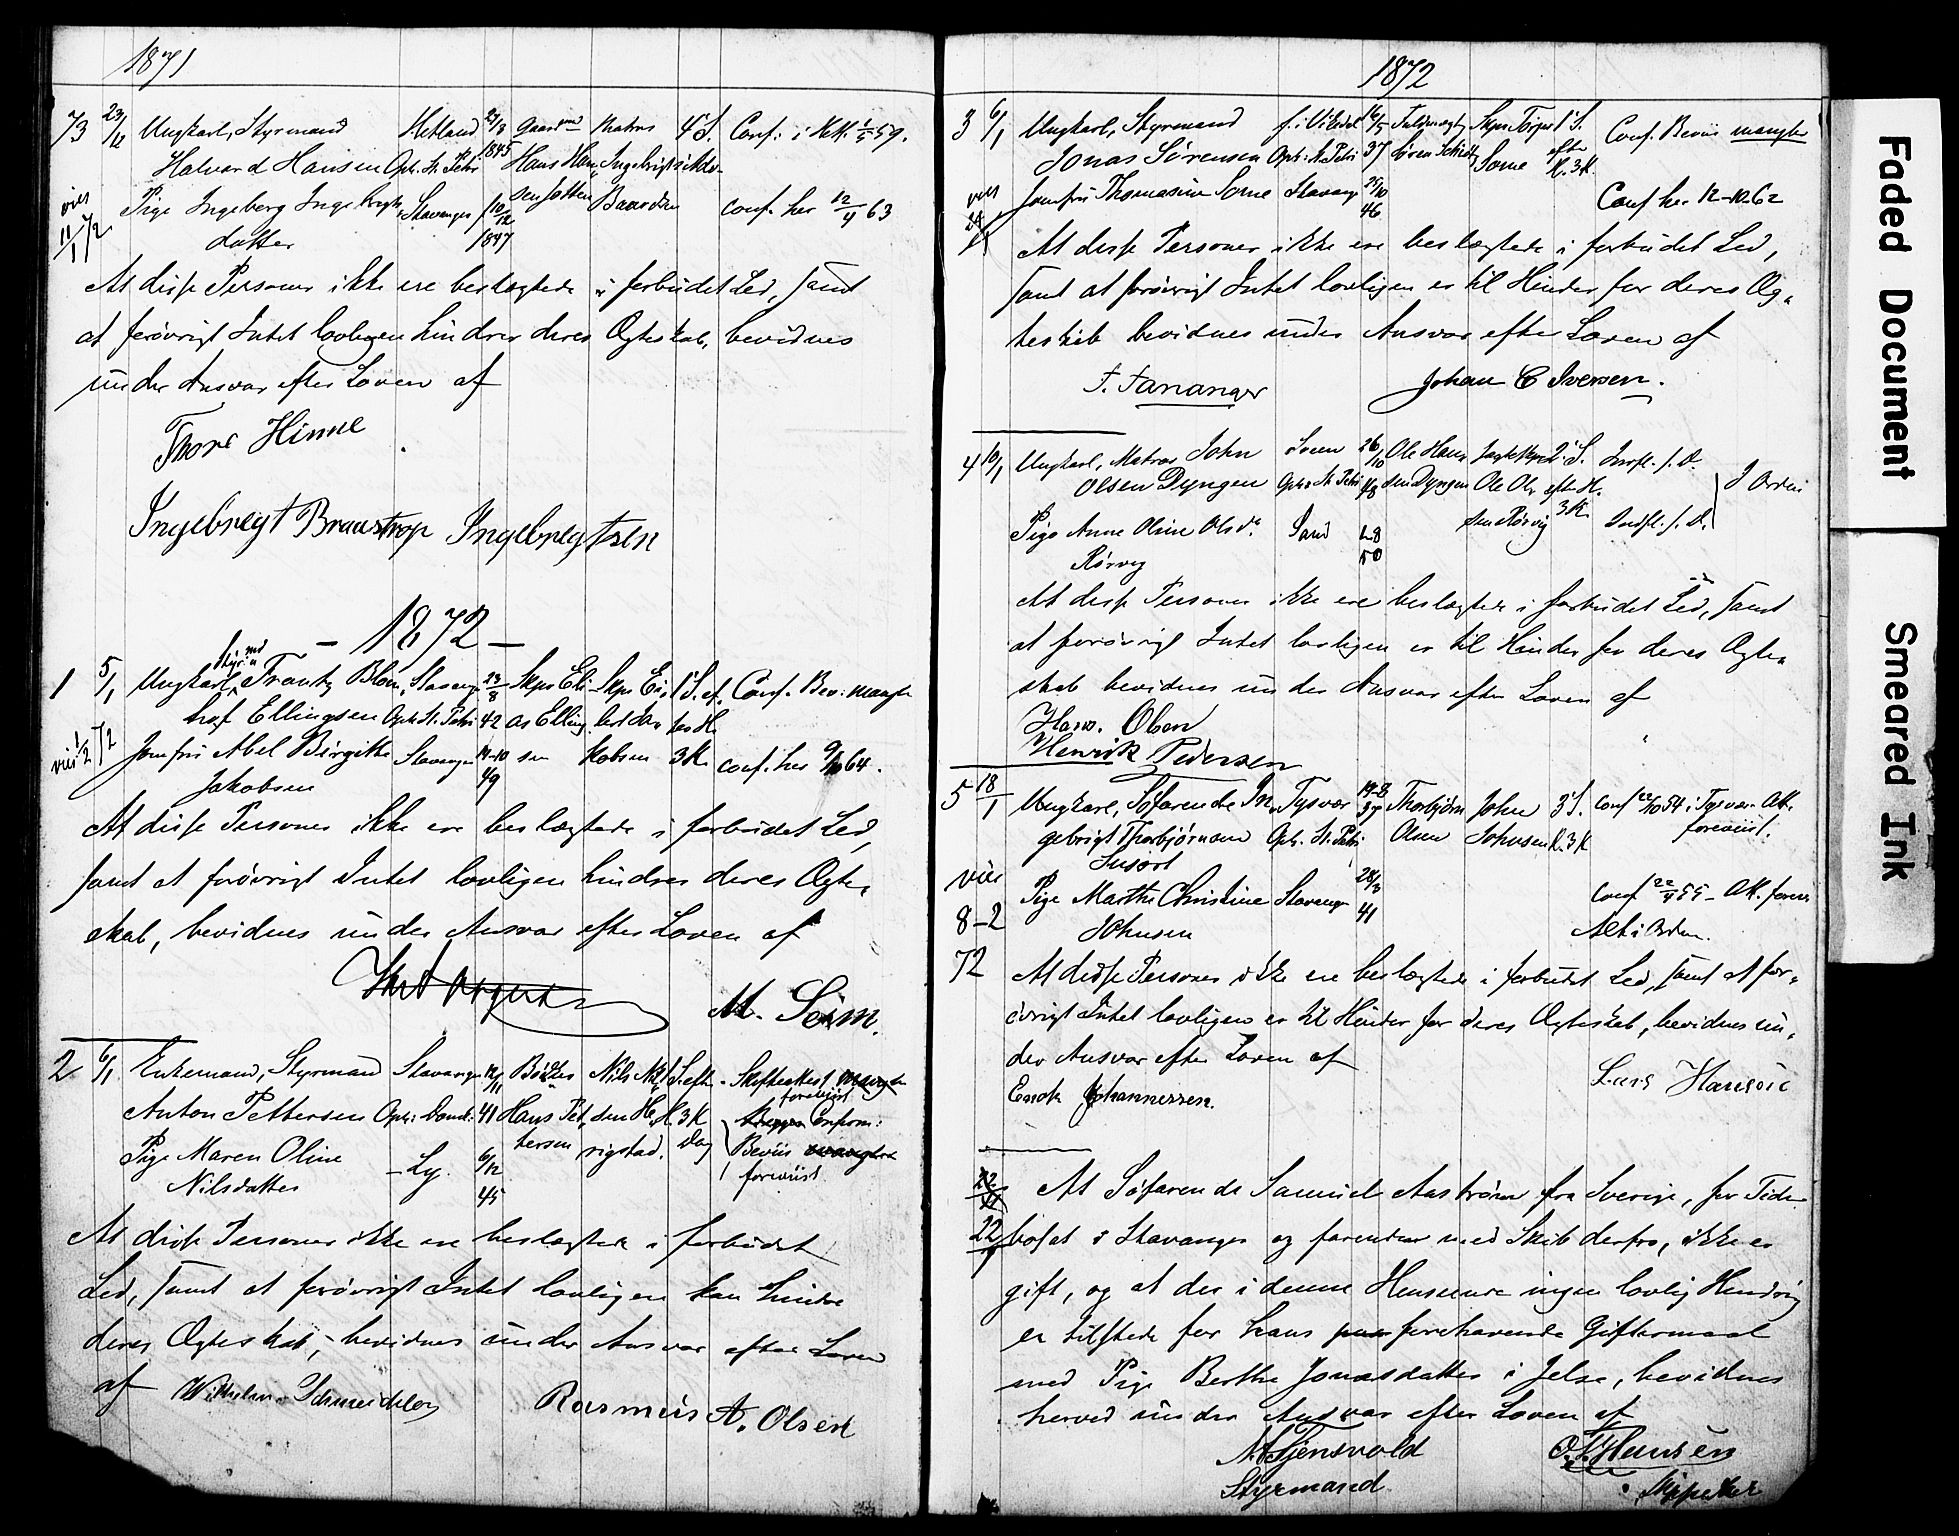 1871
73 23/12 Ungkarl, Styrmand Hetland 23/3 Gaardmd 4 S. Conf. i Hetl. 59.
Halvard Hansen Oph. St. Petri 1845 Hans Han
viet Pige Ingeborg Ingebregts Stavanger 10/12 sen Jatten Baardsen conf. her 12/4 63
11/1 72 datter 1847
At disse Personer ikke ere beslægtede i forbudet Led, samt
at forøvrigt Intet lovligen hindrer deres Ægteskab, bevidnes
under Ansvar efter Loven af
Thore Hinne
Ingebregt Braastrop Ingebregtsen
- 1872 -
Styrmd
1 5/1 Ungkarl, Frantz Blom Stavanger 23/8 Skps Eli Skps Ei 1 S. ef Conf. Bev. mangler
haf Ellingsen Oph. St. Petri 42 as Elling lert Ja ter H.
viet 1/2 72 Jomfru Abel Birgitte Stavanger 14-10 sen kobsen 3 K. conf. her 9/10 64.
Jakobsen 49
At disse Personer ikke ere beslægtede i forbudet Led,
samt at forøvrigt Intet lovligen hindrer deres Ægte
skab, bevidnes under Ansvar efter Loven af
M. Seim.
2 6/1 Enkemand, Styrmand Stavanger 14/11 Bødker Nils Nil S. efter Skifteattest mangler
foreviist
Anton Pettersen Oph. Domk. 41 Hans Pet sen He H. 3 K Conform:
Pige Maren Oline - Ly. 6/12 tersen rigstad. Dag Beviis mangler
Nilsdatter 45 foreviist
At disse Personer ikke ere beslægtede i forbudet
Led, samt at forøvrigt Intet lovligen kan hindre
deres Ægteskab, bevidnes under Ansvar efter Loven
af Wilhelm Schneidler Rasmus A. Olsen
1872
3 6/1 Ungkarl, Styrmand 16/5 Skps Törges 1 S. Conf. Beviis mangler
Jonas Sørensen Oph. St. Petri 37 Sören Schiøtz Sømme efter K. 3 K.
viet Jomfru Thomasine Sømme Stavang 25/10 Conf her 12-10.62
46
At disse Personer ikke ere beslægtede i forbudet Led,
samt at forøvrigt Intet lovligen er til Hinder for deres Æg-
teskab bevidnes under Ansvar efter Loven af
T. Tananger Johan C Iversen.
4 10/1 Ungkarl, Matros John 26/10 Ole Han Jagtskp 2 S. Indfl. s. D.
Olsen Dyngen Oph. St. Petri 48 sen Dyngen Ole Ol efter H. I Orden
Pige Anne Oline Olsd. Sand 2-8 sen Rørvig 3 K. Indfl. s. D.
Rørvig 50
At disse Personer ikke ere beslægtede i forbudet Led, samt
at forøvrigt Intet lovligen er til Hinder for deres Ægte
skab bevidnes under Ansvar efter Loven af
Hans. Olsen
Henrik Pedersen
5 18/1 Ungkarl, Søfarende In Tysvær 14-8 Thorbjørn John 3 S. Conf 22/10 54 i Tysvær Att.
gebrigt Thorbjørnsen Oph. St. Petri 37 Olsen Johnsen K. 3 K foreviist.
viet Pige Marthe Christine Stavanger 28/3 Conf 22/4 55 - Att. forev
8-2 Johnsen 41 Alt i Orden.
72 At disse Personer ikke ere beslægtede i forbudet Led, samt at for-
øvrigt Intet lovligen er til Hinder for deres Ægteskab, bevidnes un-
der Ansvar efter Loven af
Enok Johannessen. Lars Hansen
22/1 At Søfarende Samuel Aaström fra Sverige, for Tiden
22/1 bosat i Stavanger og farende med Skib derfra, ikke er
gift, og at der i denne Henseende ingen lovlig Hindring
er tilstede for hans forehavende Giftermaal
med Pige Berthe Jonasdatter i Jelse, bevidnes
herved under Ansvar efter Loven af
Stensvold O. Hansen
Styrmand Skipper
Faded Document
Smeared Ink